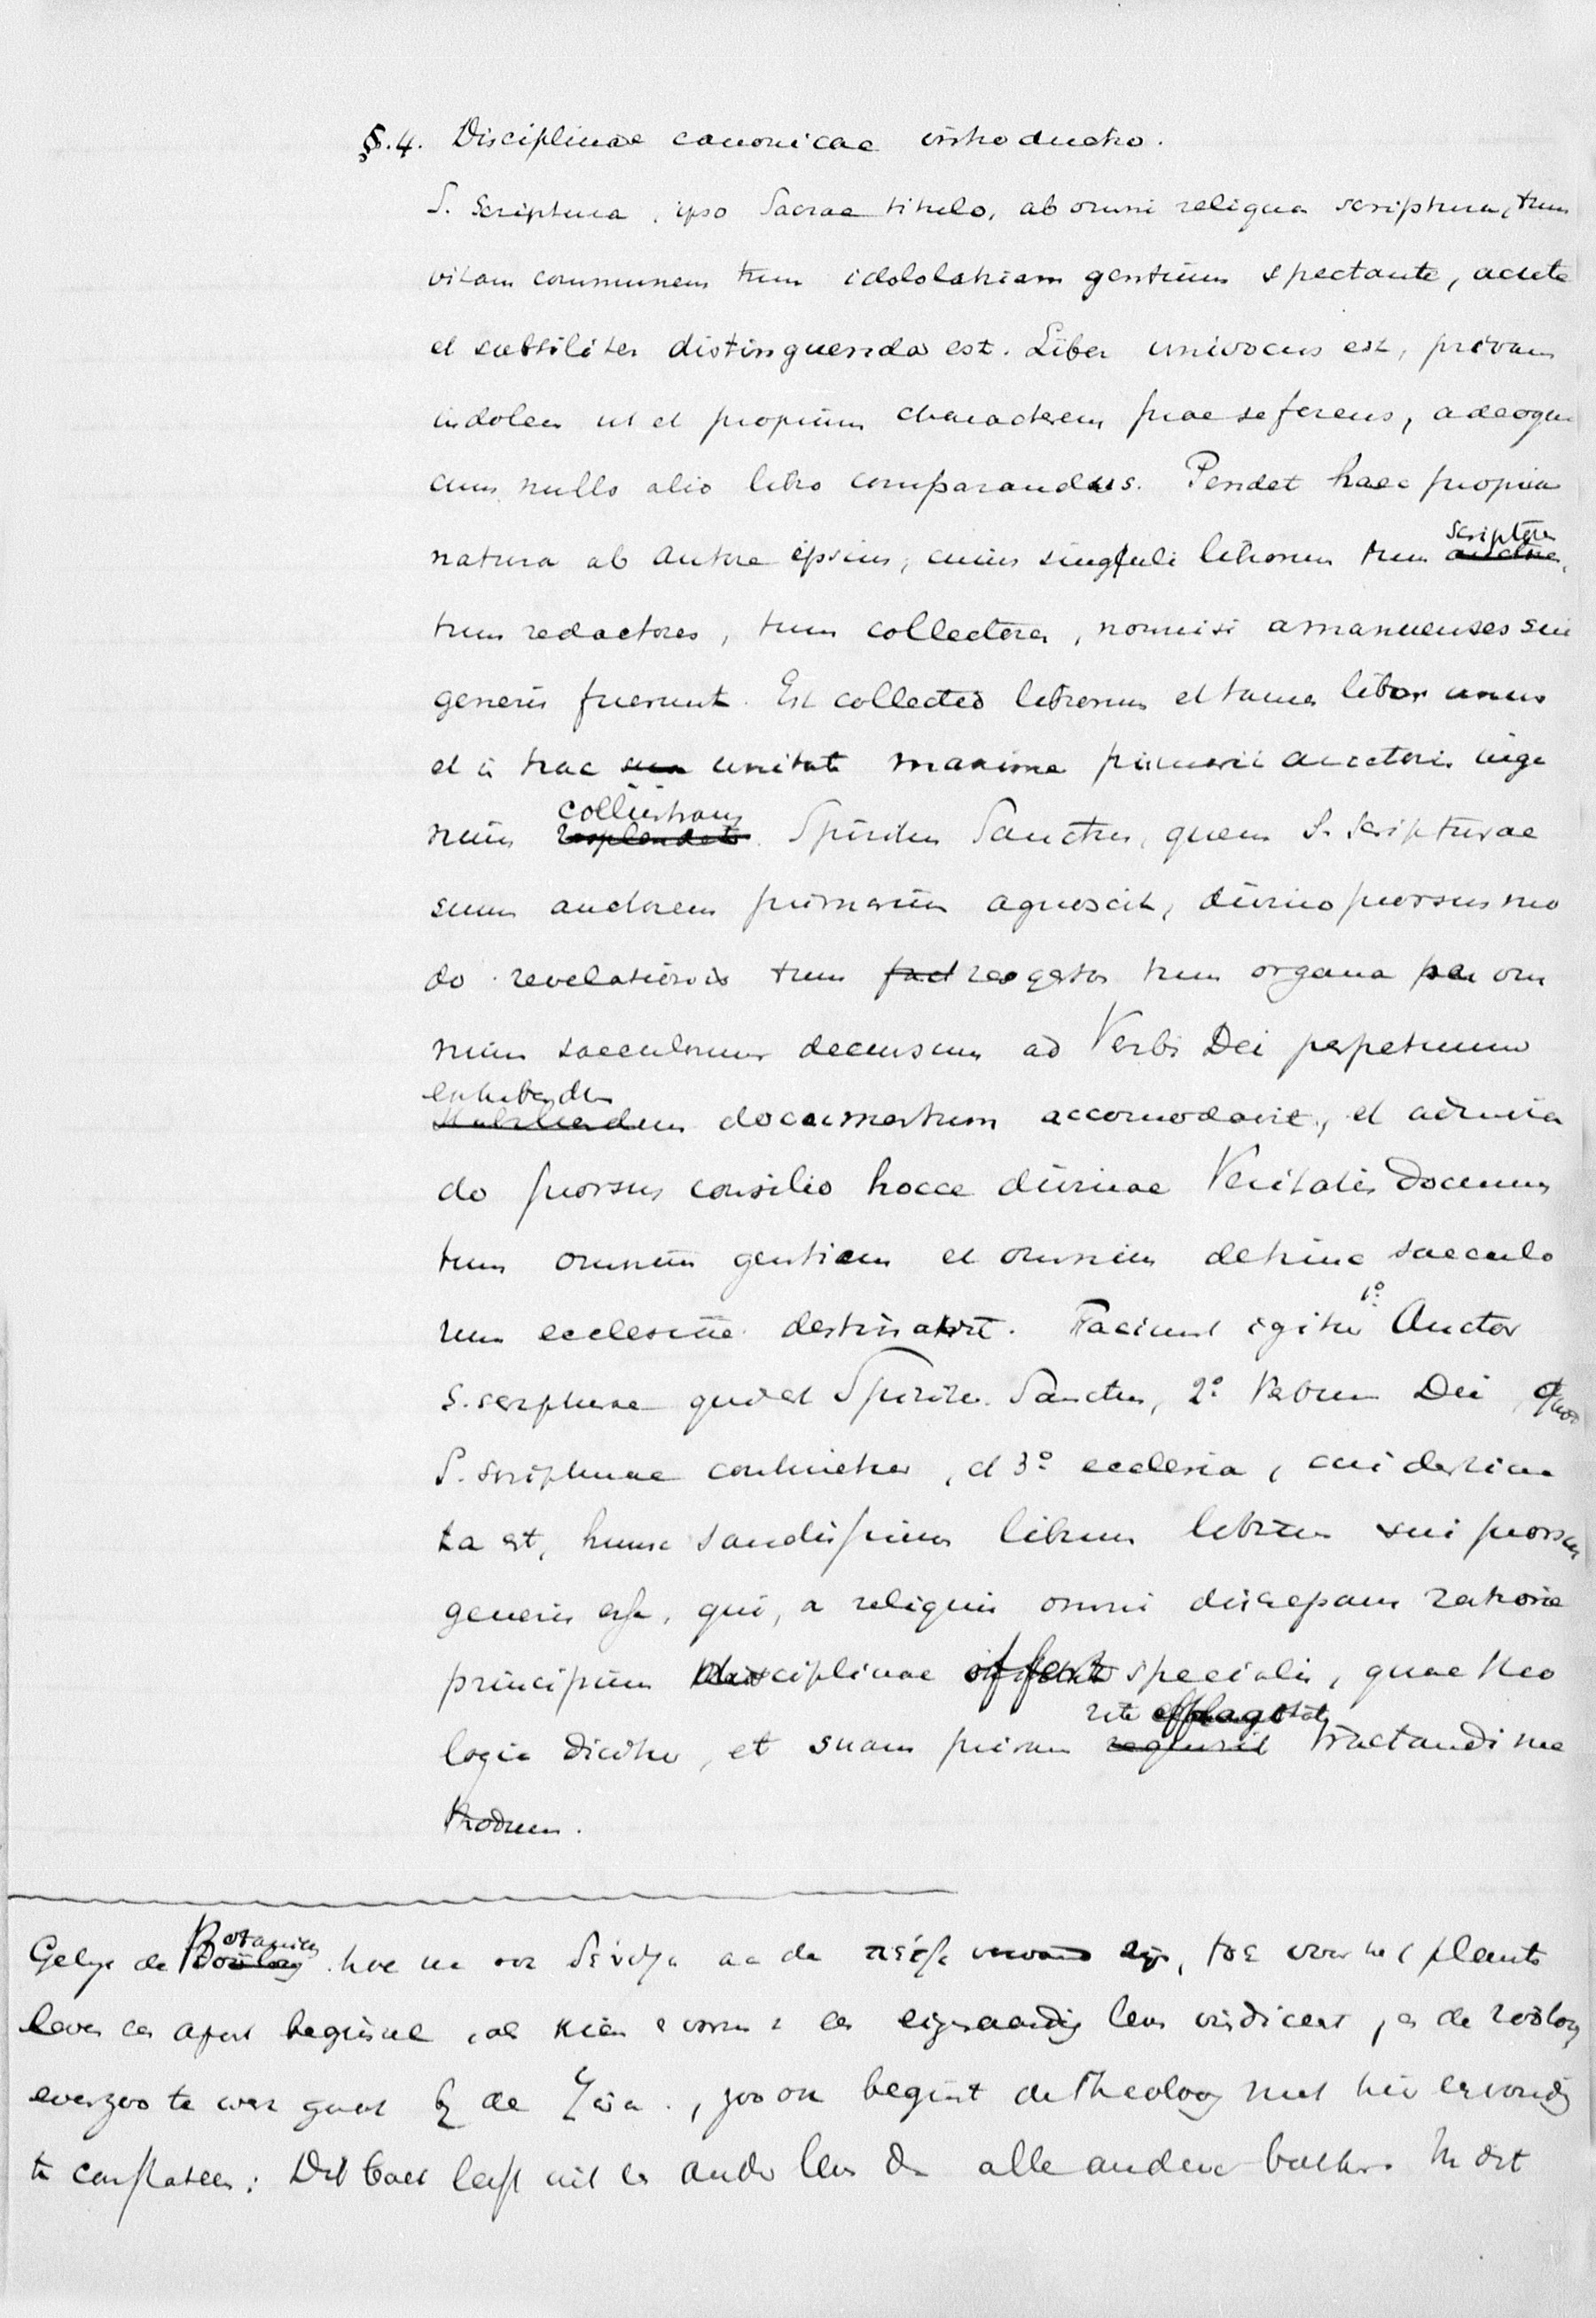 §.4. Disciplinae canonicae introductio.
S. Scriptura, ipso Sacrae titulo, ab omni reliqua scriptura, tum
vitam communem tum idololatriam gentium spectante, acute
et subtiliter distinguenda est. Liber univocus est, privam
indolem et proprium characterem prae se ferens, adeoque
cum nullo alio libro comparandus. Pendet haec propria
natura ab autore ipsius, cuius singuli librorum tum scriptores
tum redactores, tum collectores, nonnisi amanuenses sui
generis fuerunt. Est collectio librorum et tamen liber unus
et in hac unitate maxime primarii auctoris inge
nium collustrans. Spiritus Sanctus, quem S. Scripturae
suum auctorem primarium agnoscit, divino prorsus mo
do revelationis tum res gestas tum organa per om
nium saeculorum decursum ad Verbi Dei perpetuum
exhibendum documentum accomodavit, et admiran
do prorsus consilio hocce divinae Veritatis Documen
tum omnium gentium et omnium dehinc saeculo
rum ecclesiae destinavit. Faciunt igitur 1º. Auctor
S. Scripturae qui est Spiritus Sanctus, 2º Verbum Dei, quod
S. Scripturae continetur, et 3º ecclesia, cui destina
ta est, hunc sanctissimum librum librum sui prorsus
generis esse, qui, a reliquis omni discrepans ratione
principium disciplinae offert specialis, quae theo
logia dicitur, et suam privam rite tractandi me
thodum.
Gelijk de Botanicus
leven en apart beginsel eigenaardig leven vindiceert, en de zoöloog
evenzoo te werk gaat bij de , zoo ook begint de Theoloog met hier eenvoudig
te constateeren: Dit boek leeft uit en ander leven dan alle andere boeken. In dit